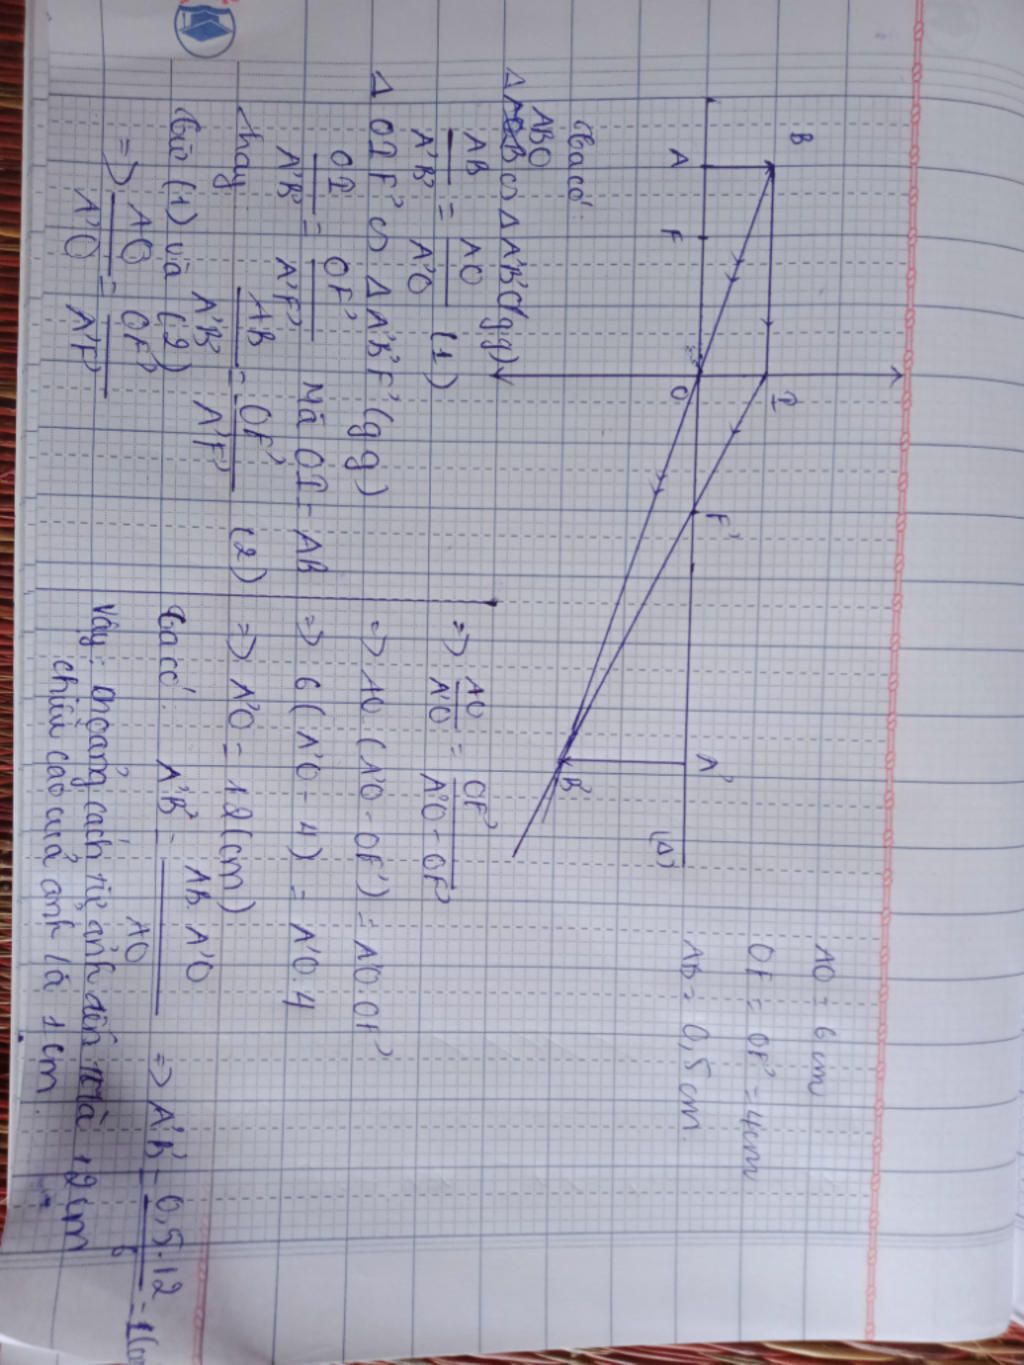 AO = 6 cm
OF = OF' = 4cm
AB = 0,5 cm.
B
I
A
F
O
F'
A'
(Δ)
B'
Ta có:
ABO
Δ ∽ Δ A'B'O (g.g)
AB/A'B' = AO/A'O (1)
Δ OIF' ∽ Δ A'B'F' (g g)
OI/A'B' = OF'/A'F' Mà OI = AB
hay AB/A'B' = OF'/A'F' (2)
Từ (1) và (2)
=> AO/A'O = OF'/A'F'
=> AO/A'O = OF'/A'O - OF'
=> AO. (A'O - OF') = A'O. OF'
=> 6 (A'O - 4) = A'O. 4
=> A'O = 12 (cm)
Ta có: A'B' = AB. A'O/AO => A'B' = 0,5. 12/6 = 1
Vậy: khoảng cách từ ảnh đến là 12 cm
chiều cao của ảnh là 1 cm.